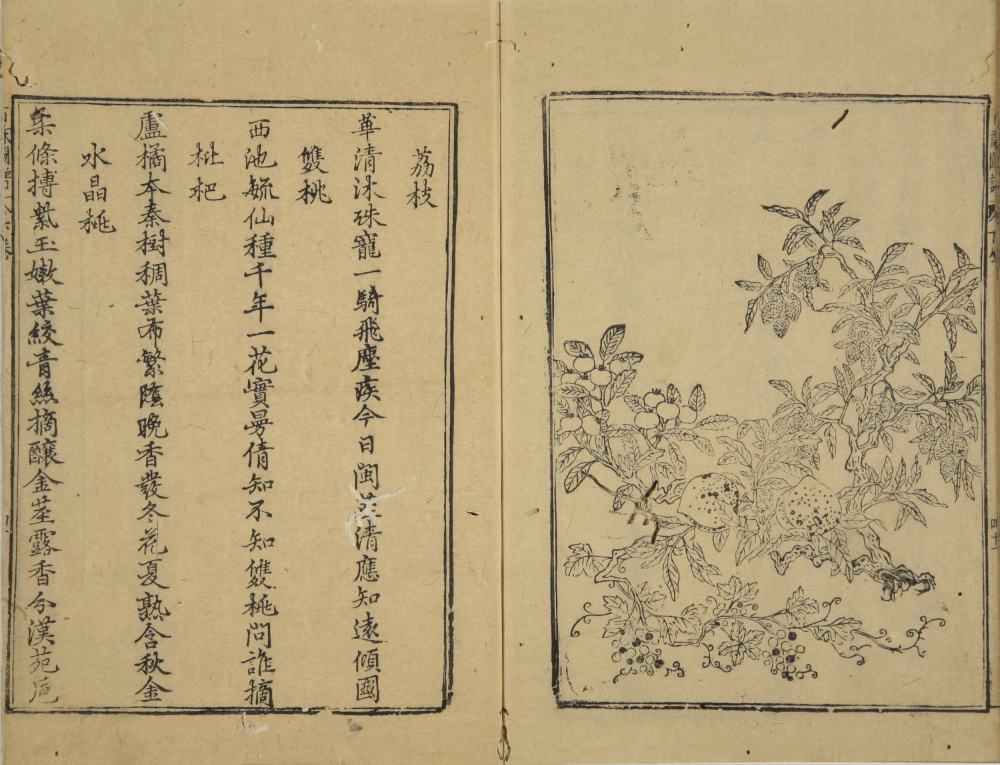 荔枝
華清沐殊寵一騎飛塵疾今日閩 清應知遠傾國
雙桃
西池毓仙種千年一花實曼倩知不知雙桃問誰摘
枇杷
盧橘本秦樹稠葉布繁陰晚香發冬花夏熟含秋金
水晶桃
柔條搏紫玉嫩葉絞青絲摘釀金莖露香分漢苑卮